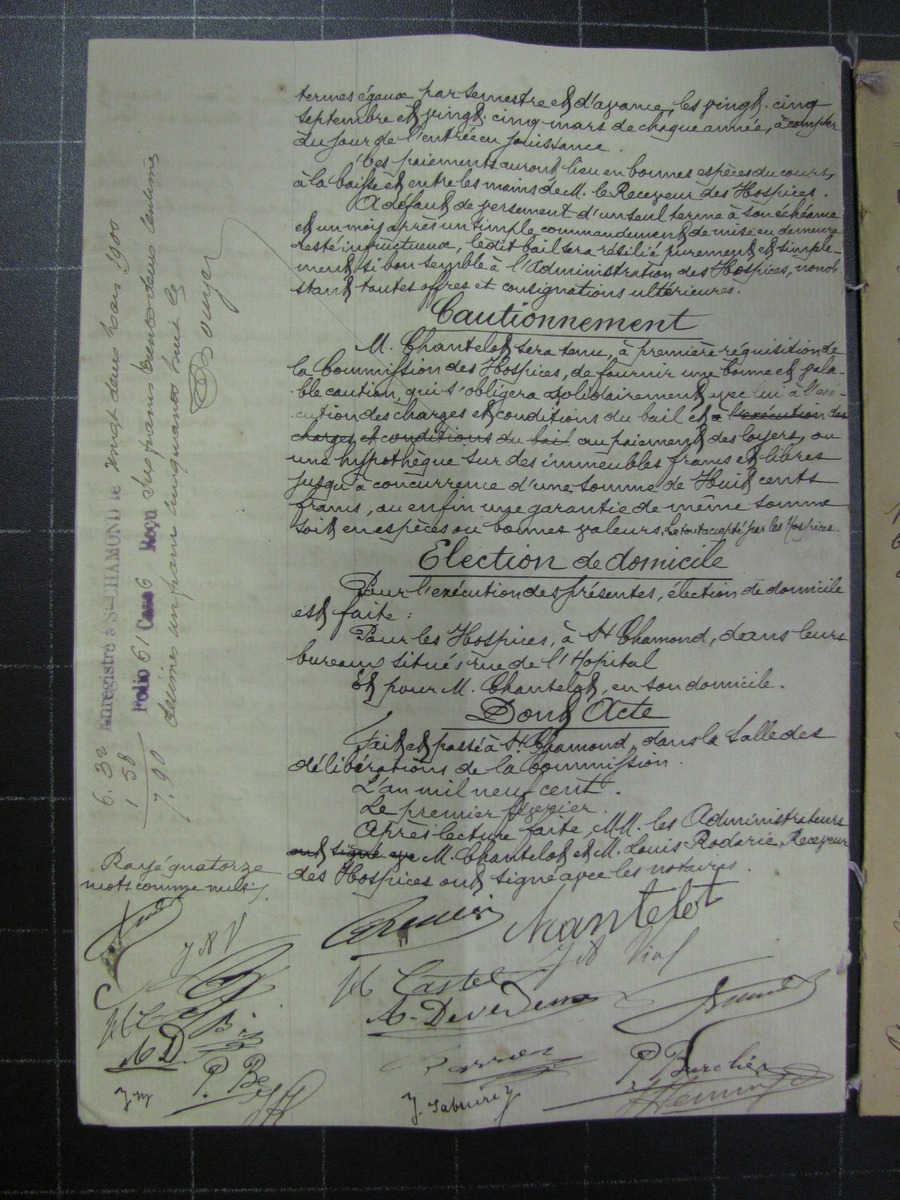 termes égaux par semestre et d'avance, les vingt-cinq
septembre et vingt-cinq mars de chaque année, à compter
du jour de l'entrée en jouissance.
Ces paiements auront lieu en bonnes espèces du cours,
à la caisse et entre les mains de M. le Receveur des Hospices.
A défaut de versement d'un seul terme à son échéance
et un mois après un simple commandement de mise en demeure
resté infructueux, ledit bail sera résilié purement et simple-
ment, si bon semble à l'Administration des Hospices, nonob-
stant toutes offres et consignations ultérieures.
Cautionnement
M. Chantelot sera tenu, à première réquisition de
la Commission des Hospices, de fournir une bonne et vala-
ble caution, qui s'obligera solidairement avec lui à l'exé-
cution des charges et conditions du bail et à l'exécution des
charges et conditions du bail au paiement des loyers, ou
une hypothèque sur des immeubles francs et libres
jusqu'à concurrence d'une somme de Huit cents
francs, ou enfin une garantie de même somme
soit en espèces ou bonnes valeurs. Le tout accepté par les Hospices.
Election de domicile
Pour l'exécution des présentes, élection de domicile
est faite :
Pour les Hospices, à St Chamond, dans leurs
bureaux situés rue de l'Hopital
Et pour M. Chantelot, en son domicile.
Dont Acte
Fait et passé à St Chamond, dans la Salle des
délibérations de la Commission.
L'an mil neuf cent.
Le premier février.
Après lecture faite, MM. les Administrateurs
ont signé avec M. Chantelot et M. Louis Rodarie, Receveur
des Hospices ont signé avec les notaires.
Enregistré à St-CHAMOND le vingt deux mars 1900
Folio 61 Case 6 Reçu six francs trente deux centimes
décimes un franc cinquante huit c
6.32
1.58
7.90
Rayé quatorze
mots comme nuls,
J A V
M C
A D
P. B
J M
Chantelot
J A Vial
M Castel
P. Burchier